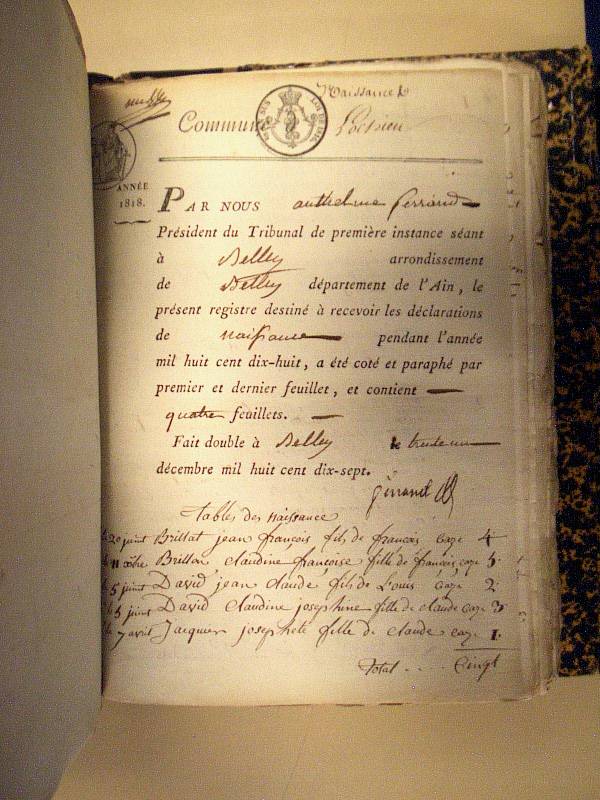 Naissance
Commune Loisieu
ANNÉE
1818.
PAR NOUS anthelme ferrand
Président du Tribunal de première instance séant
à Belley arrondissement
de Belley département de l'Ain, le
présent registre destiné à recevoir les déclarations
de naissance pendant l'année
mil huit cent dix-huit, a été coté et paraphé par
premier et dernier feuillet, et contient
quatre feuillets.
Fait double à Belley le trente un
décembre mil huit cent dix-sept.
Tables des naissance
20 juint Brillat jean françois fils de françois caze 4
11 oobre Brillon claudine françoise fille de françois caze 5
5 juint David jean claude fils de Louis caze 2
le 5 juint David claudine josephine fille de claude caze 3
le 7 avril Jacquier josephete fille de claude caze 1.
Total .... Cinqt